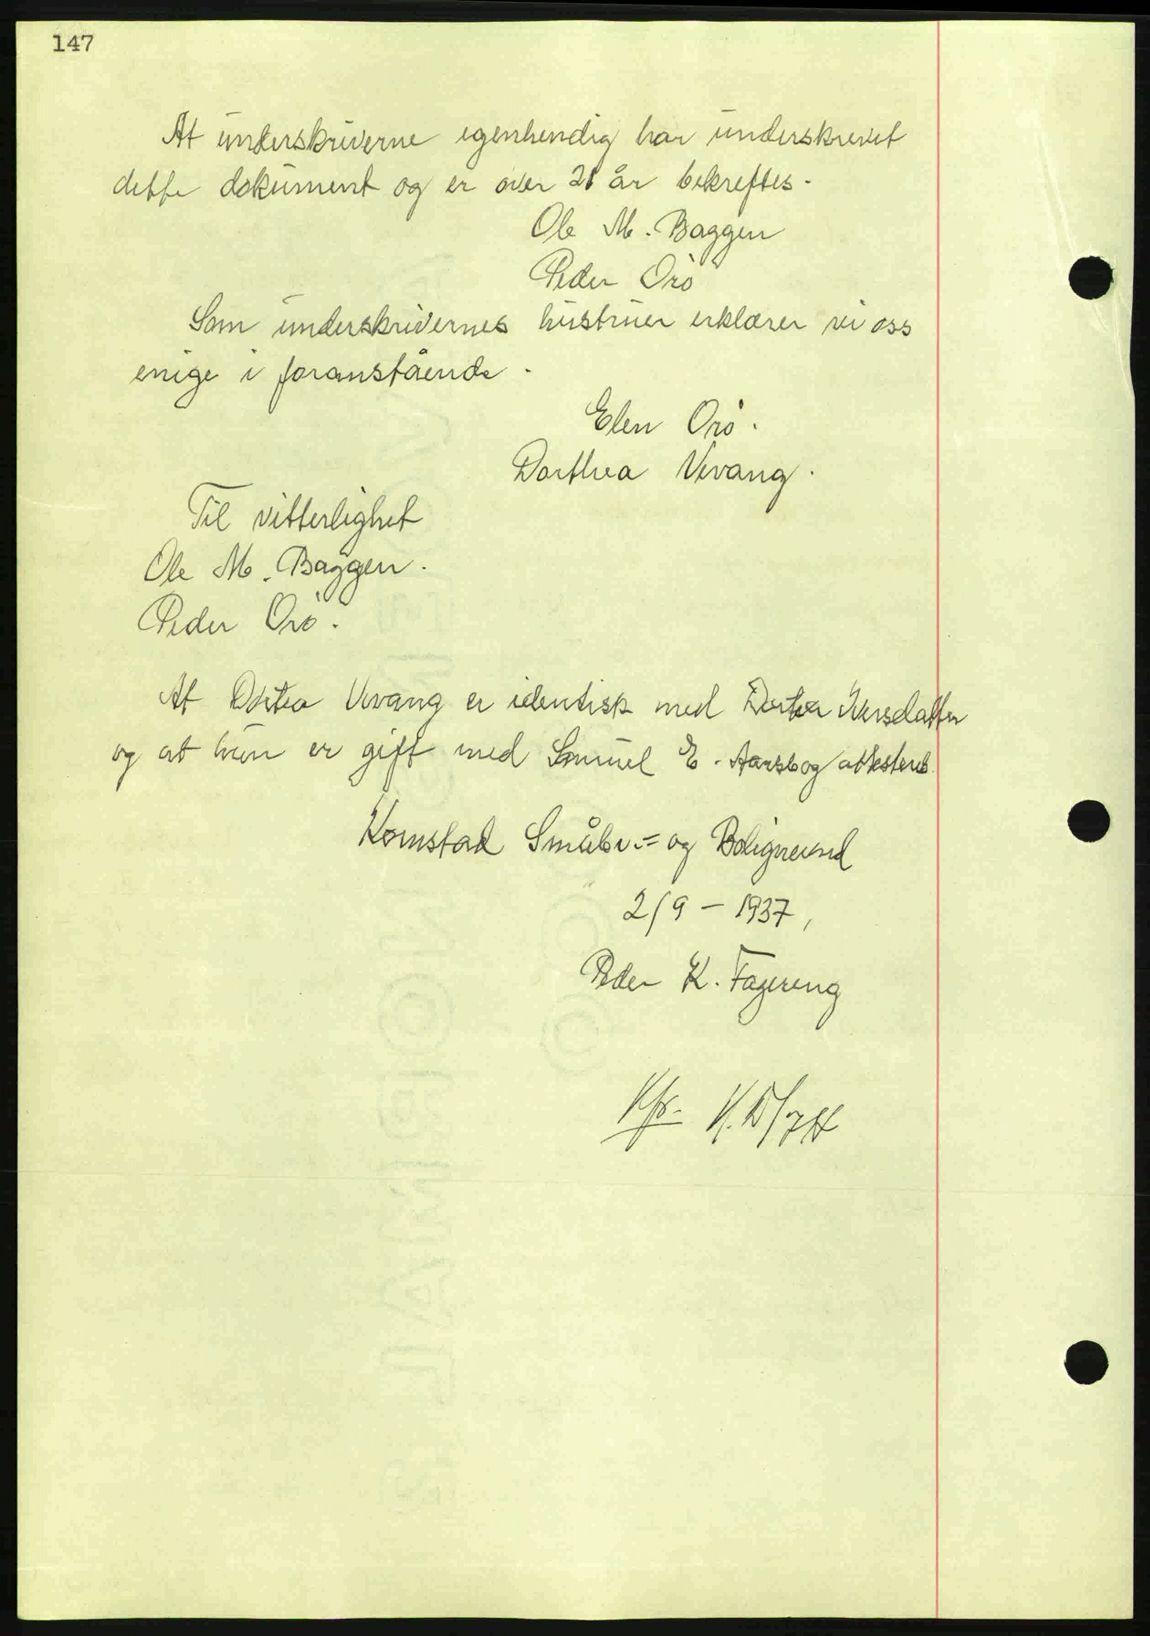 147
At underskriverne egenhendig har underskrevet
dette dokument og er over 21 år bekreftes.
Ole M. Baggen
Peder Orö
Som underskrivernes hustruer erklærer vi oss
enige i foranstående.
Elen Orö.
Dorthea Vevang.
Til vitterlighet
Ole M. Baggen.
Peder Orö.
At Dortea Vevang er identisk med Dortea Iversdatter
og at hun er gift med Samuel E. og attesteres
Komstad Småbr.= og
2/9 - 1937,
Peder K. Fagereng
Kfr.